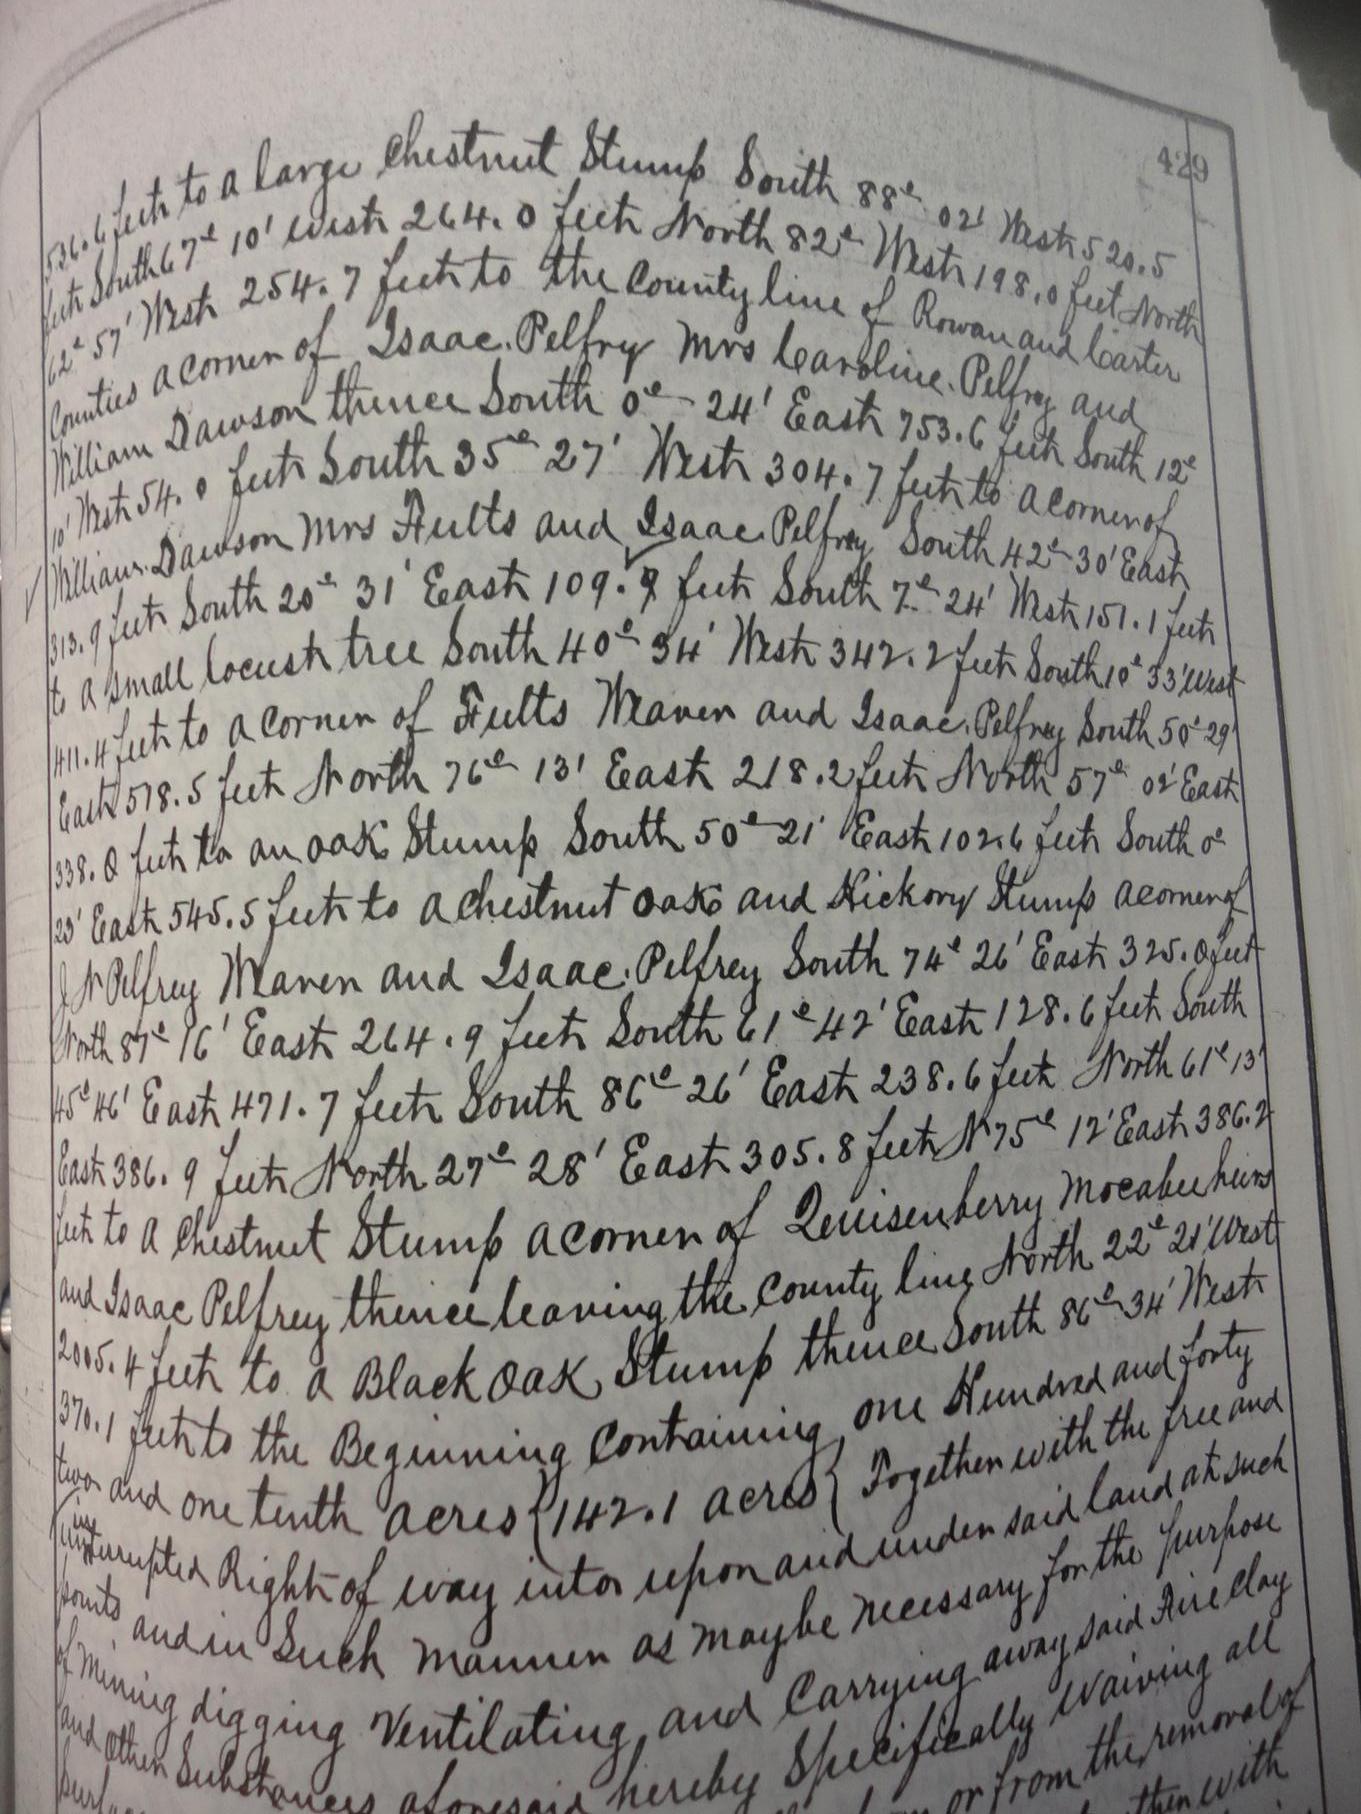 429
536.6 feet to a large Chestnut Stump South 88° 02' West 520.5
feet South 67° 10' West 264.0 feet North 82° West 198.0 feet North
62° 57' West 254.7 feet to the County line of Rowan and Carter
Counties a corner of Isaac Pelfry Mrs Caroline Pelfrey and
William Dawson thence South 0° 24' East 753.6 feet South 12°
10' West 54.0 feet South 35° 27' West 304.7 feet to a corner of
William Dawson Mrs Fults and Isaac Pelfrey South 42° 30' East
313.9 feet South 20° 31' East 109.9 feet South 7° 24' West 151.1 feet
to a small locust tree South 40° 34' West 342.2 feet South 10° 33' West
411.4 feet to a corner of Fults Weaver and Isaac Pelfrey South 50° 29'
East 518.5 feet North 76° 13' East 218.2 feet North 57° 02' East
338.0 feet to an oak Stump South 50° 21' East 102.6 feet South 0°
23' East 545.5 feet to a Chestnut oak and Hickory Stump a corner of
J N Pelfrey Weaver and Isaac Pelfrey South 74° 26' East 325.0 feet
North 87° 16' East 264.9 feet South 61° 42' East 128.6 feet South
45° 46' East 471.7 feet South 86° 26' East 238.6 feet North 61° 13'
East 386.9 feet North 27° 28' East 305.8 feet N 75° 12' East 386.2
feet to a Chestnut Stump a corner of Quisenberry Mocabee heirs
and Isaac Pelfrey thence leaving the County line North 22° 21' West
2005.4 feet to a Black Oak Stump thence South 86° 34' West
370.1 feet to the Beginning Containing one Hundred and forty
two and one tenth acres {142.1 acres} Together with the free and
uninterrupted Right of way into upon and under said land at such
points and in Such manner as maybe necessary for the purpose
of Mining digging Ventilating and Carrying away said Fire Clay
and other Substances aforesaid hereby Specifically Waiving all
or from the removal of
with